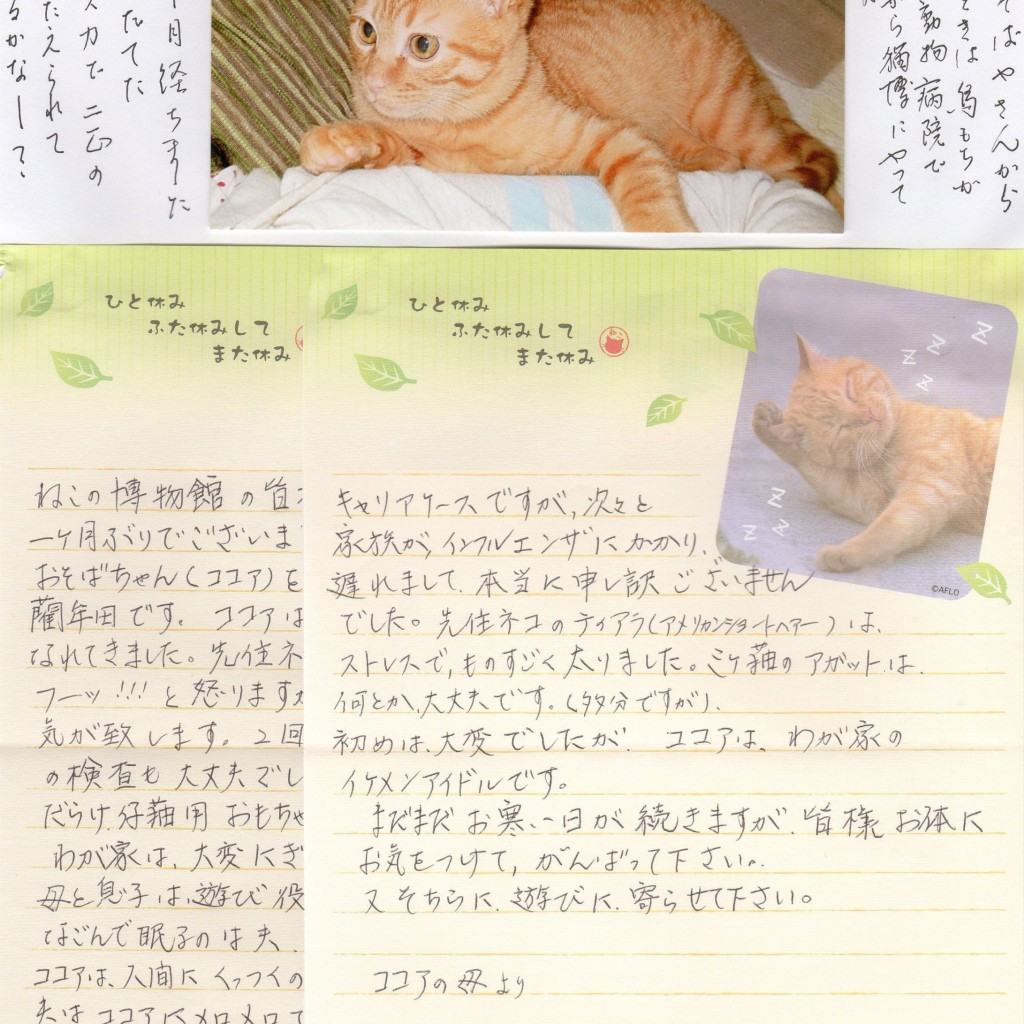 そばやさんから
ときは鳥もちが
動物病院で
から猫博にやって
ヶ月経ちました
たてた
スカな二匹の
たえられて
るかなー？
ひと休み
ふた休みして
また休み
ねこの博物館の皆
一ヶ月ぶりでございま
おそばちゃん(ココア)を
藺牟田です。ココアは
なれてきました。先住ネ
フーッ!!!と怒りますが
気が致します。2回
の検査も大丈夫でし
だらけ、仔猫用おもちゃ
わが家は、大変にぎ
母と息子は、遊び役
なごんで眠るのは夫、
ココアは、人間にくっつくの
夫はココアにメロメロで
ひと休み
ふた休みして
また休み
ねこ
Z
Z
Z
Z
Z
Z
Z
©AFLO
キャリアケースですが、次々と
家族が、インフルエンザにかかり、
遅れまして、本当に申し訳ございません
でした。先住ネコのティアラ(アメリカンショートヘアー)は、
ストレスで、ものすごく太りました。ミケ猫のアガットは、
何とか、大丈夫です。(多分ですが)、
初めは、大変でしたが、ココアは、わが家の
イケメンアイドルです。
まだまだお寒い日が続きますが、皆様お体に
お気をつけて、がんばって下さい。
又そちらに、遊びに、寄らせて下さい。
ココアの母より